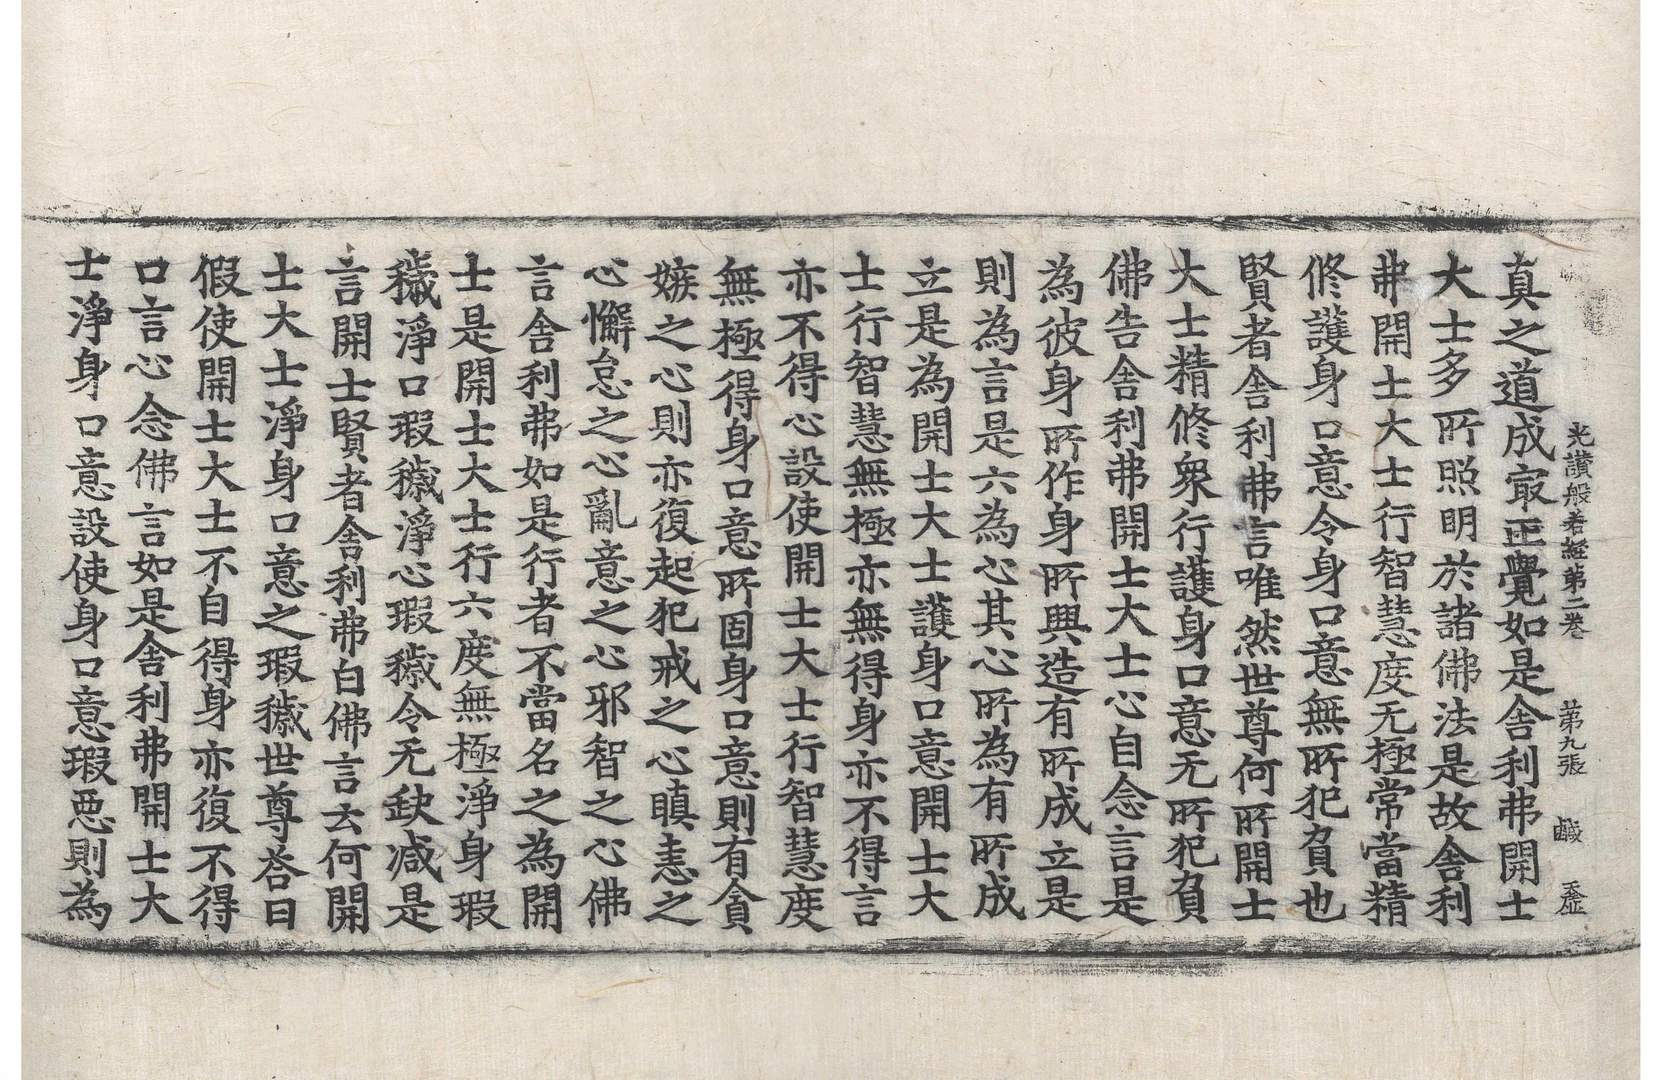 光讃般若經第二卷 第九張 鹹
真之道成㝡正覺如是舍利弗開士
大士多所照明於諸佛法是故舍利
弗開士大士行智慧度无極常當精
修護身口意令身口意無所犯負也
賢者舍利弗言唯然世尊何所開士
大士精修衆行護身口意无所犯負
佛告舍利弗開士大士心自念言是
為彼身所作身所興造有所成立是
則為言是六為心其心所為有所成
立是為開士大士護身口意開士大
士行智慧無極亦無得身亦不得言
亦不得心設使開士大士行智慧度
無極得身口意所固身口意則有貪
嫉之心則亦復起犯戒之心瞋恚之
心懈怠之心亂意之心邪智之心佛
言舍利弗如是行者不當名之為開
士是開士大士行六度無極淨身瑕
穢淨口瑕穢淨心瑕穢令无缺減是
言開士賢者舍利弗白佛言云何開
士大士淨身口意之瑕穢世尊荅曰
假使開士大士不自得身亦復不得
口言心念佛言如是舍利弗開士大
士淨身口意設使身口意瑕惡則為